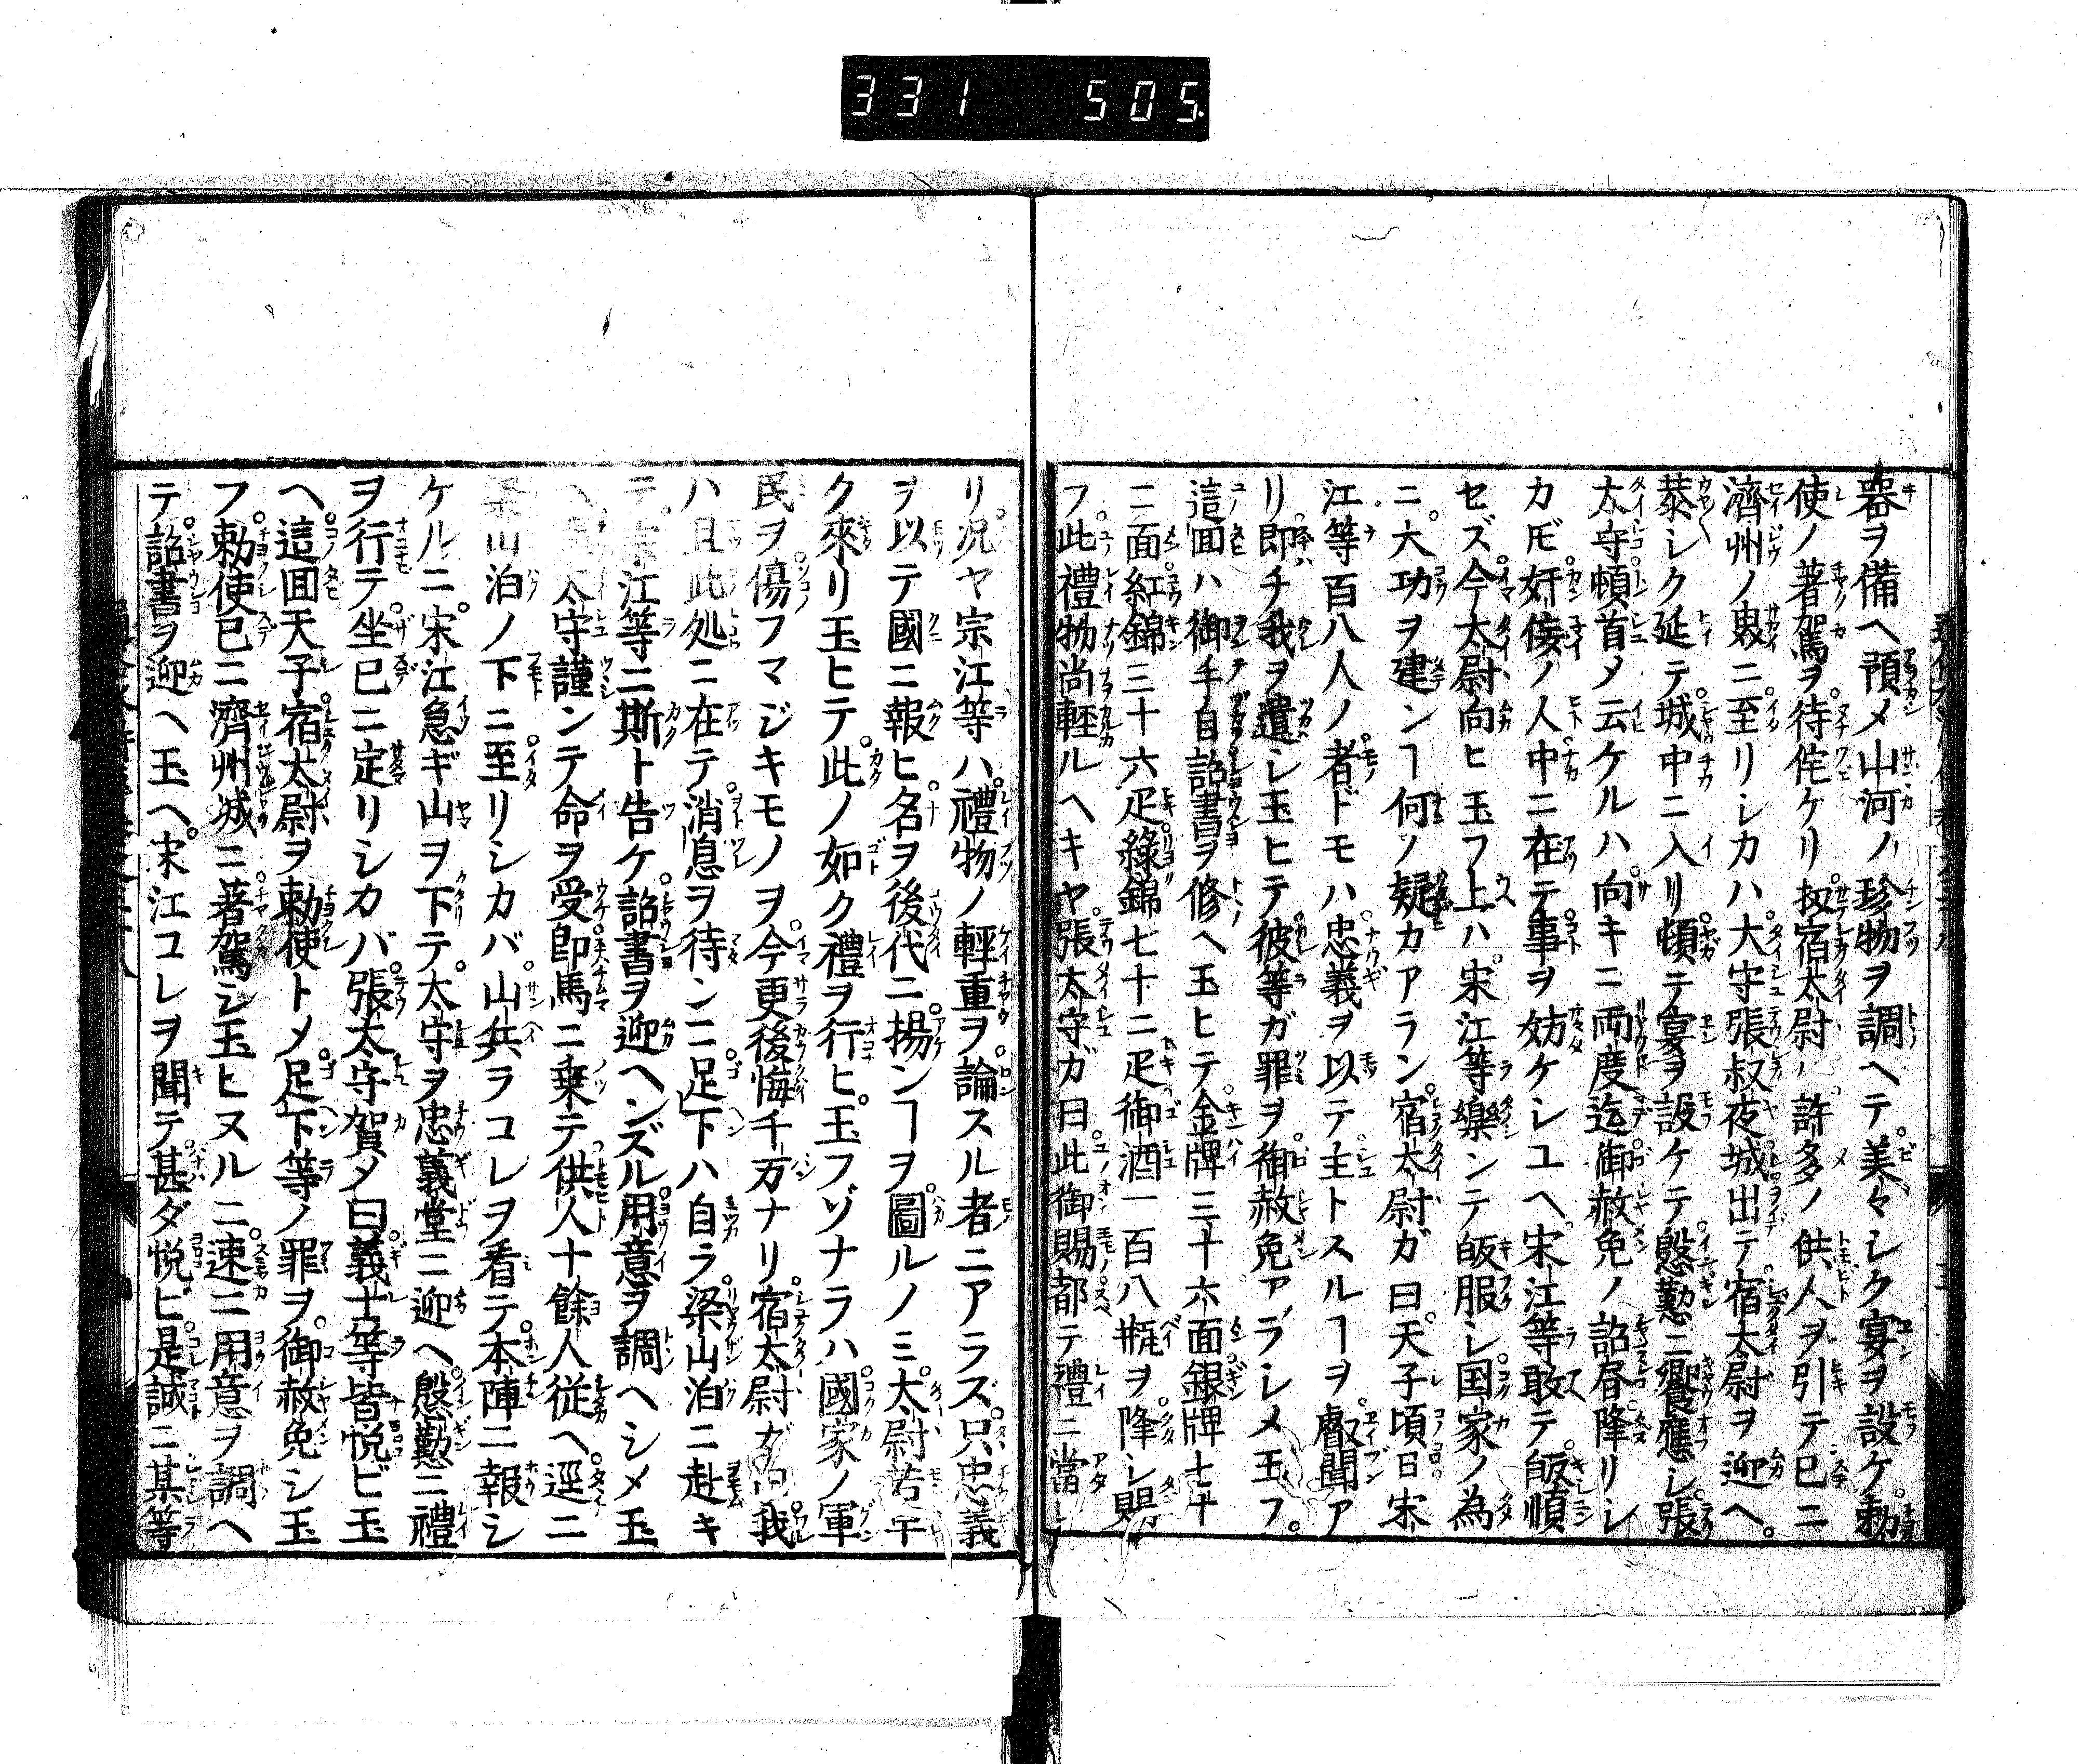 331 505
器ヲ備ヘ預メ山河ノ珍物ヲ調ヘテ美々シク宴ヲ設ケ勅
使ノ著駕ヲ待侘ケリ扨宿太尉ハ許多ノ供人ヲ引テ已ニ
濟州ノ界ニ至リシカハ大守張叔夜城出テ宿太尉ヲ迎ヘ
恭シク延テ城中ニ入リ頓テ宴ヲ設ケテ慇懃ニ饗應シ張
太守頓首〆云ケルハ向キニ両度迄御赦免ノ詔書降リシ
カ𪜈奸侫ノ人中ニ在テ事ヲ妨ケシユヘ宋江等敢テ皈順
セズ今太尉向ヒ玉フ上ハ宋江等樂ンテ皈服シ国家ノ為
ニ大功ヲ建ンヿ何ノ疑カアラン宿太尉ガ曰天子頃日宋
江等百八人ノ者ドモハ忠義ヲ以テ主トスルヿヲ叡聞ア
リ即チ我ヲ遣シ玉ヒテ彼等ガ罪ヲ御赦免アラシメ玉フ
這回ハ御手自詔書ヲ修ヘ玉ヒテ金牌三十六面銀牌七十
二面紅錦三十六疋綠錦七十二疋御酒一百八瓶ヲ降シ賜
フ此禮物尚輕ルヘキヤ張太守ガ曰此御賜都テ禮ニ當レ
リ况ヤ宗江等ハ禮物ノ輕重ヲ論スル者ニアラズ只忠義
ヲ以テ國ニ報ヒ名ヲ後代ニ揚ンヿヲ圖ルノミ太尉若早
ク來リ玉ヒテ此ノ如ク禮ヲ行ヒ玉フゾナラハ國家ノ軍
民ヲ傷フマジキモノヲ今更後悔千万ナリ宿太尉ガ曰我
ハ且此処ニ在テ消息ヲ待ン二足下ハ自ラ梁山泊ニ赴キ
テ宋江等ニ斯ト告ケ詔書ヲ迎ヘンズル用意ヲ調ヘシメ玉
ヘ 太守謹ンテ命ヲ受即馬ニ乗テ供人十餘人従ヘ逕ニ
梁山泊ノ下ニ至リシカバ山兵ラコレヲ看テ本陣ニ報シ
ケルニ宋江急ギ山ヲ下テ太守ヲ忠義堂ニ迎ヘ慇懃ニ禮
ヲ行テ坐已ニ定リシカバ張太守賀〆曰義士等皆悦ビ玉
ヘ這回天子宿太尉ヲ勅使ト〆足下等ノ罪ヲ御赦免シ玉
フ勅使已ニ濟州城ニ著駕シ玉ヒヌルニ速ニ用意ヲ調ヘ
テ詔書ヲ迎ヘ玉ヘ宋江コレヲ聞テ甚ダ悦ビ是誠ニ某等